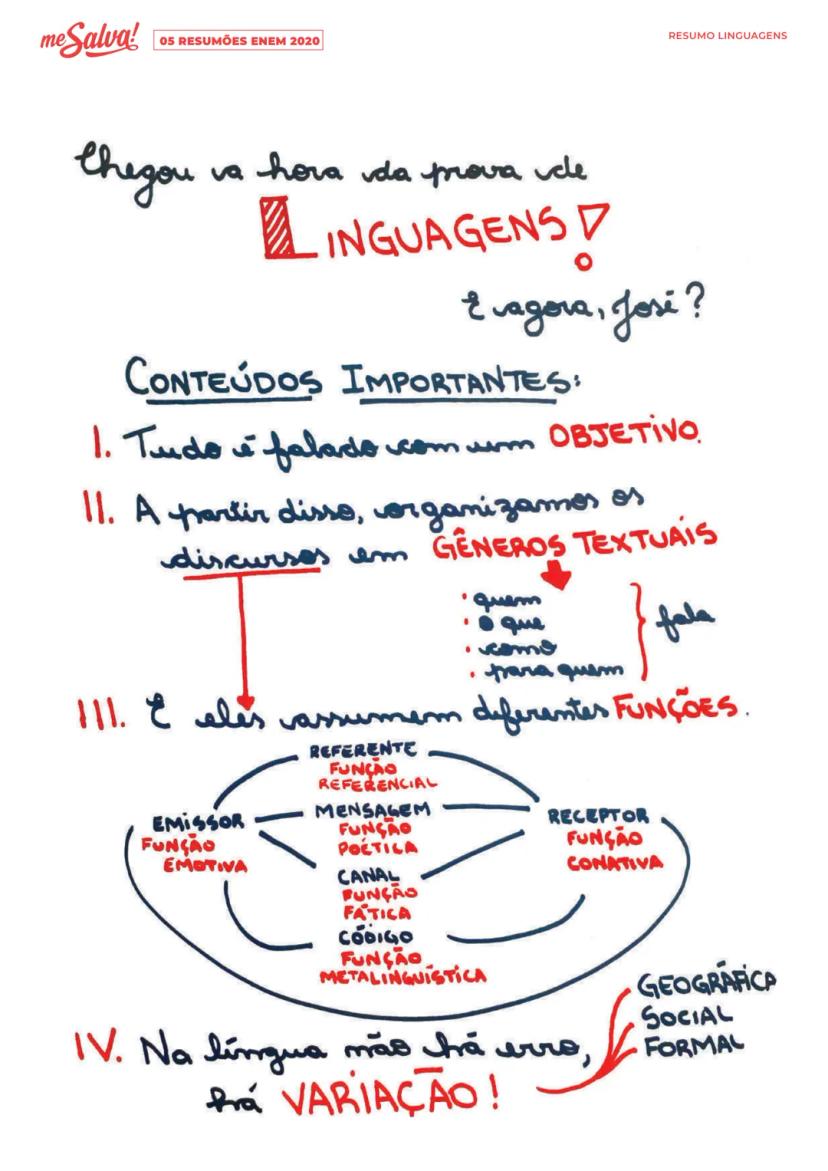 me Salva!
05 RESUMÕES ENEM 2020
RESUMO LINGUAGENS
Chegou a hora da prova de
LINGUAGENS!
E agora, José?
CONTEÚDOS IMPORTANTES:
I. Tudo é falado com um OBJETIVO.
II. A partir disso, organizamos os
discursos em GÊNEROS TEXTUAIS
• quem
• o que
• como
• para quem
fala
III. E eles assumem diferentes FUNÇÕES.
REFERENTE
FUNÇÃO
REFERENCIAL
EMISSOR
FUNÇÃO
EMOTIVA
MENSAGEM
FUNÇÃO
POÉTICA
RECEPTOR
FUNÇÃO
CONATIVA
CANAL
FUNÇÃO
FÁTICA
CÓDIGO
FUNÇÃO
METALINGUÍSTICA
IV. Na língua não há erro,
há VARIAÇÃO!
GEOGRÁFICA
SOCIAL
FORMAL